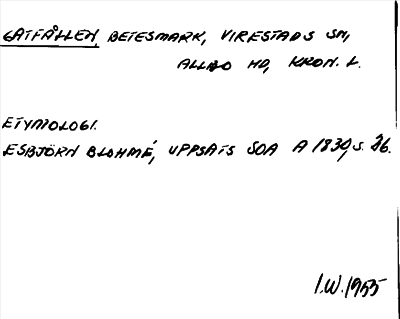 GATFÅLLEN, BETESMARK, VIRESTADS SN,
ALLBO HD, KRON. L.
ETYMOLOGI.
ESBJÖRN BLOHMÉ, UPPSATS SOA A 1830, S. 26.
I.W. 1955